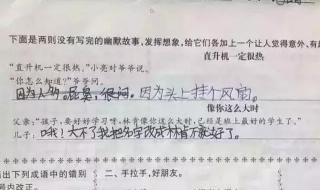 下面是两则没有写完的幽默故事,发挥想象,给它们各加上一个让人觉得意外,有
直升机一定很热
"直升机一定很热。"小亮对爷爷说。
"你怎么知道?"爷爷问。
因为人多。屁臭,很闷。因为头上挂个风扇。
像你这么大时
父亲:"孩子,要好好学习呀,林肯像你这么大时,已经是班上最好的学生了。"
儿子:哦!大不了我把名字改成林肯不就好了。
出下列成语中的错别
二、手拉手,好朋友。
号内改正。